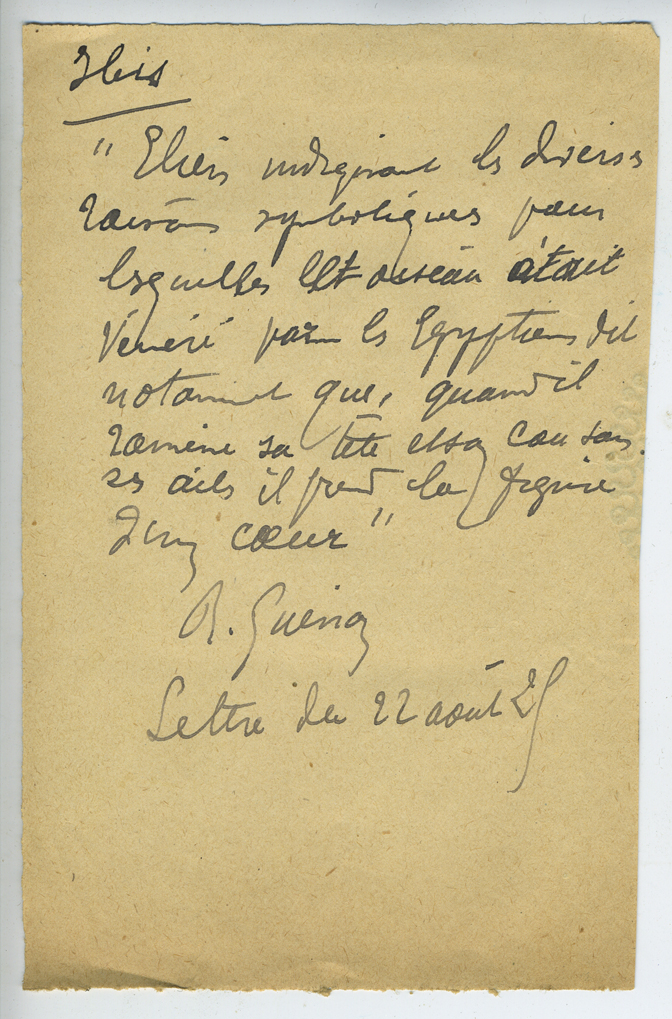 Ibis
" Elien indiquant les diverses
raisons symboliques pour
lesquelles cet oiseau était
vénéré par les Egyptiens dit
notamment que, quand il
ramène sa tête et son cou sous
ses ailes il prend la figure
d'un cœur "
R. Guénon
Lettre du 22 août 25